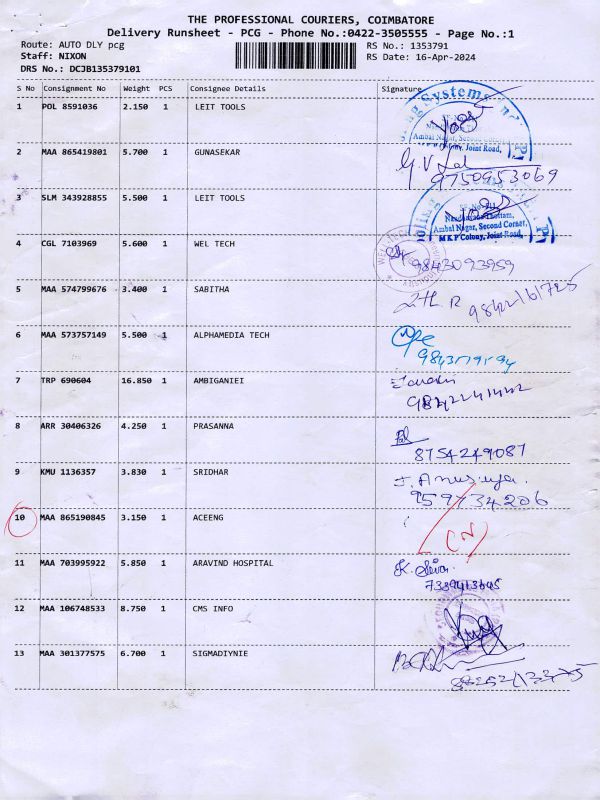 THE PROFESSIONAL COURIERS, COIMBATORE
Delivery Runsheet - PCG - Phone No.:0422-3505555 - Page No.:1
Route: AUTO DLY pcg RS No.: 1353791
Staff: NIXON RS Date: 16-Apr-2024
DRS No.: DCJB135379101
S No Consignment No Weight PCS Consignee Details Signature
1 POL 8591036 2.150 1 LEIT TOOLS
Ambal Nagar, Second Corner,
Colony, Joint Road,
2 MAA 865419801 5.700 1 GUNASEKAR
9750953069
3 SLM 343928855 5.500 1 LEIT TOOLS
Ambal Nagar, Second Corner,
M K P Colony, Joint Road,
4 CGL 7103969 5.600 1 WEL TECH
9843093959
5 MAA 574799676 3.400 1 SABITHA
6 MAA 573757149 5.500 1 ALPHAMEDIA TECH
7 TRP 690604 16.850 1 AMBIGANIEI
8 ARR 30406326 4.250 1 PRASANNA
8754249087
9 KMU 1136357 3.830 1 SRIDHAR
9597734206
10 MAA 865190845 3.150 1 ACEENG
11 MAA 703995922 5.850 1 ARAVIND HOSPITAL
12 MAA 106748533 8.750 1 CMS INFO
13 MAA 301377575 6.700 1 SIGMADIYNIE